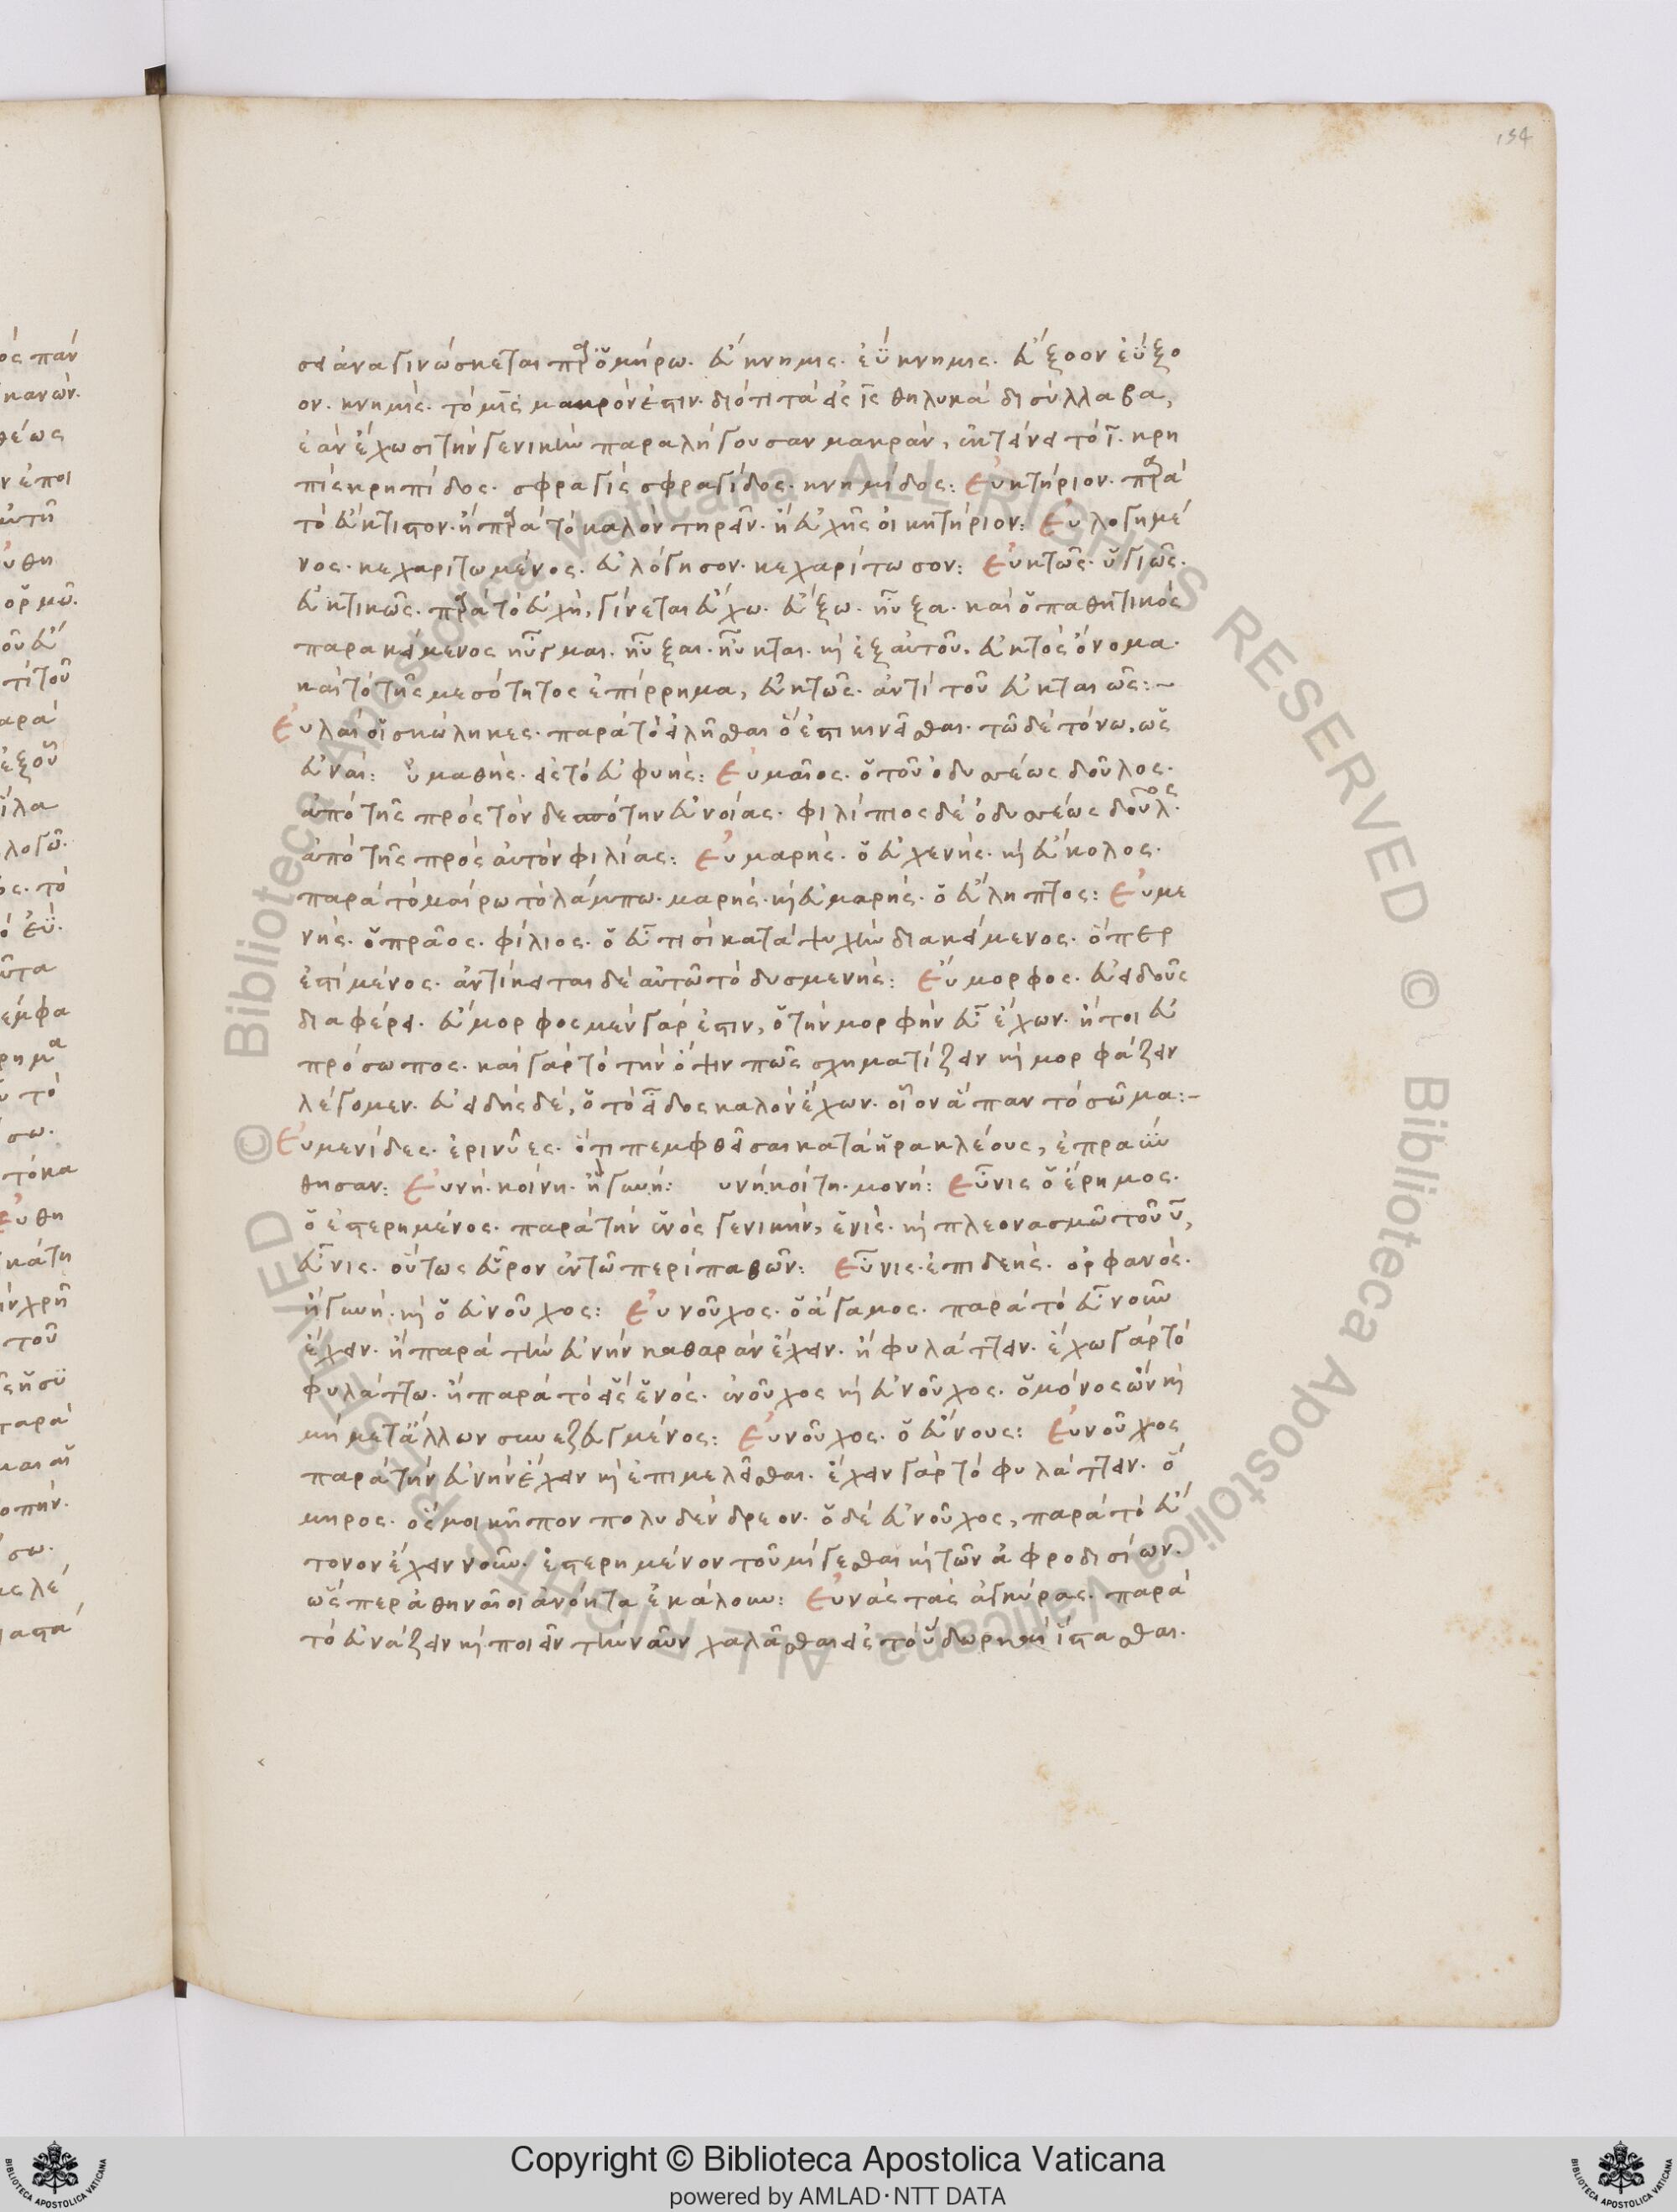 154
σει ἀναγινώσκεται παρ' ὁμήρω. εὔκνημις. ἐϋκνημις. εὔξοον ἐΰξο
ον. κνημίς. τὸ μῑς μακρόν ἐστιν. διότι τὰ εἰς ῑς θηλυκὰ δισύλλαβα,
ἐὰν ἔχωσι τὴν γενικὴν παραλήγουσαν μακρὰν, ἐκτείνει τὸ ῑ. κρη
πὶς κρηπίδος. σφραγὶς σφραγίδος. κνημίδος: Εὐκτήριον. παρὰ
τὸ εὔκτιστον. ἢ παρὰ τὸ καλὸν τηρεῖν. ἢ εὐχῆς οἰκητήριον: Εὐλογημέ
νος. κεχαριτωμένος. εὐλόγησον. κεχαρίτωσον: Εὐκτῶς. ὑγιῶς.
εὐκτικῶς. παρὰ τὸ εὐχὴ, γίνεται εὔχω. εὔξω. ηὖξα. καὶ ὁ παθητικὸς
παρακείμενος ηὖγμαι. ηὖξαι. ηὖκται. καὶ ἐξ αὐτοῦ. εὐκτὸς ὄνομα.
καὶ τὸ τῆς μεσότητος ἐπίρρημα, εὐκτῶς. ἀντὶ τοῦ εὐκταιῶς:~
Εὐλαὶ οἱ σκώληκες. παρὰ τὸ εἰλῆσθαι ὅ ἐστι κινεῖσθαι. τῶ δὲ τόνω, ὡς
εὐναί: ὐμαθής. εἰς τὸ εὐφυής: Εὐμαῖος. ὁ τοῦ ὀδυσσέως δοῦλος.
ἀπὸ τῆς πρὸς τὸν δεσπότην εὐνοίας. φιλίππιος δὲ ὀδυσσέως δοῦλος.
ἀπὸ τῆς πρὸς αὐτὸν φιλίας: Εὐμαρής. ὁ εὐχενής. καὶ εὔκολος.
παρὰ τὸ μαίρω τὸ λάμπω. μαρής. καὶ εὐμαρής. ὁ εὔληπτος: Εὐμε
νής. ὁ πρᾶος. φίλιος. ὁ εὖ τισὶ κατὰ ψυχὴν διακείμενος. ὅπερ
ἐστὶ μένος. ἀντίκειται δὲ αὐτῶ τὸ δυσμενής: Εὔμορφος. εὐειδοῦς
διαφέρει. εὔμορφος μὲν γάρ ἐστιν, ὁ τὴν μορφὴν εὖ ἔχων. ἤτοι εὐ
πρόσωπος. καὶ γὰρ τὸ τὴν ὄψιν πῶς σχηματίζειν καὶ μορφάζειν
λέγομεν. εὐειδὴς δέ, ὁ τὸ εἶδος καλὸν ἔχων. οἷον ἅπαν τὸ σῶμα:-
Εὐμενίδες. ἐρινῦες. ὅτι πεμφθεῖσαι κατὰ ἡρακλέους, ἐπραΰν
θησαν: Εὐνή. κοίνη. ἢ γυνή: υνή. κοίτη. μονή: Εὖνις ὁ ἔρημος.
ὁ ἐστερημένος. παρὰ τὴν ἑνὸς γενικήν, ἕνις. καὶ πλεονασμῶ τοῦ υ,
εὖνις. οὕτως εὗρον ἐν τῶ περὶ παθῶν: Εὖνις. ἐπιδεής. ὀρφανός.
ἢ γυνή. καὶ ὁ εὐνοῦχος: Εὐνοῦχος. ὁ ἄγαμος. παρὰ τὸ εὖ νοῦν
ἔχειν. ἢ παρὰ τὴν εὐνὴν καθαρὰν ἔχειν. ἢ φυλάττειν. ἔχω γὰρ τὸ
φυλάττω. ἢ παρὰ τὸ εἷς ἑνός. ἑνοῦχος καὶ εὐνοῦχος. ὁ μόνος ὢν καὶ
μὴ μετ' ἄλλων συνεζευγμένος: Εὐνοῦχος. ὁ εὔνους: Εὐνοῦχος
παρὰ τὴν εὐνὴν ἔχειν καὶ ἐπιμελεῖσθαι. ἔχειν γὰρ τὸ φυλάττειν. ὅ
μηρος. ὅς μοι κῆπον πολυδένδρεον. ὁ δὲ εὐνοῦχος, παρὰ τὸ εὔ
τονον ἔχειν νοῦν. ἐστερημένον τοῦ μίγεσθαι καὶ τῶν ἀφροδισίων.
ὥσπερ ἀθηναῖοι ἀνόητα ἐκάλουν: Εὐνὰς τὰς ἀγκύρας. παρὰ
τὸ εὐνάζειν καὶ ποιεῖν τὴν ναῦν χαλᾶσθαι εἰς τὸ ὕδωρ καὶ ἵστασθαι.
Copyright © Biblioteca Apostolica Vaticana
powered by AMLAD·NTT DATA